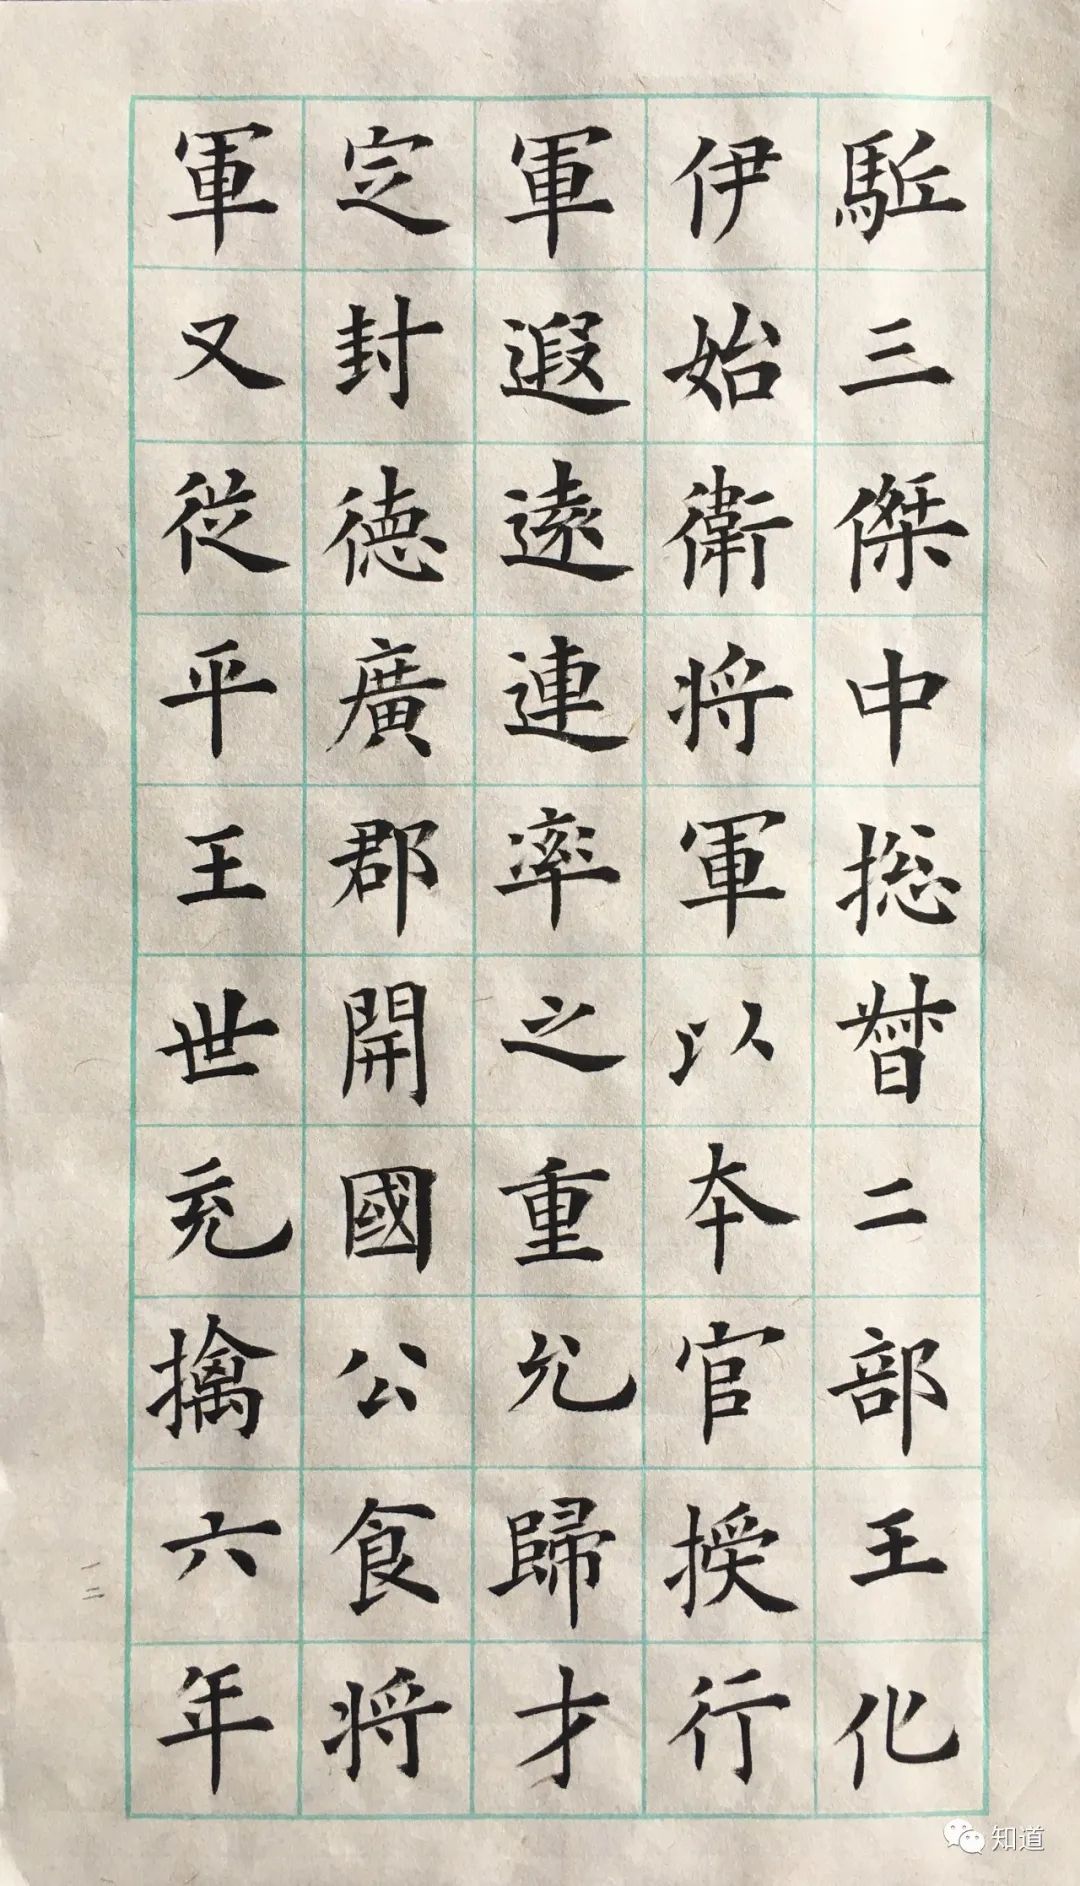 駈三傑中捴督二部王化
伊始衛将軍以本官授行
軍遐遠連率之重允歸才
定封德廣郡開國公食将
軍又從平王世充擒六年
一二
知道